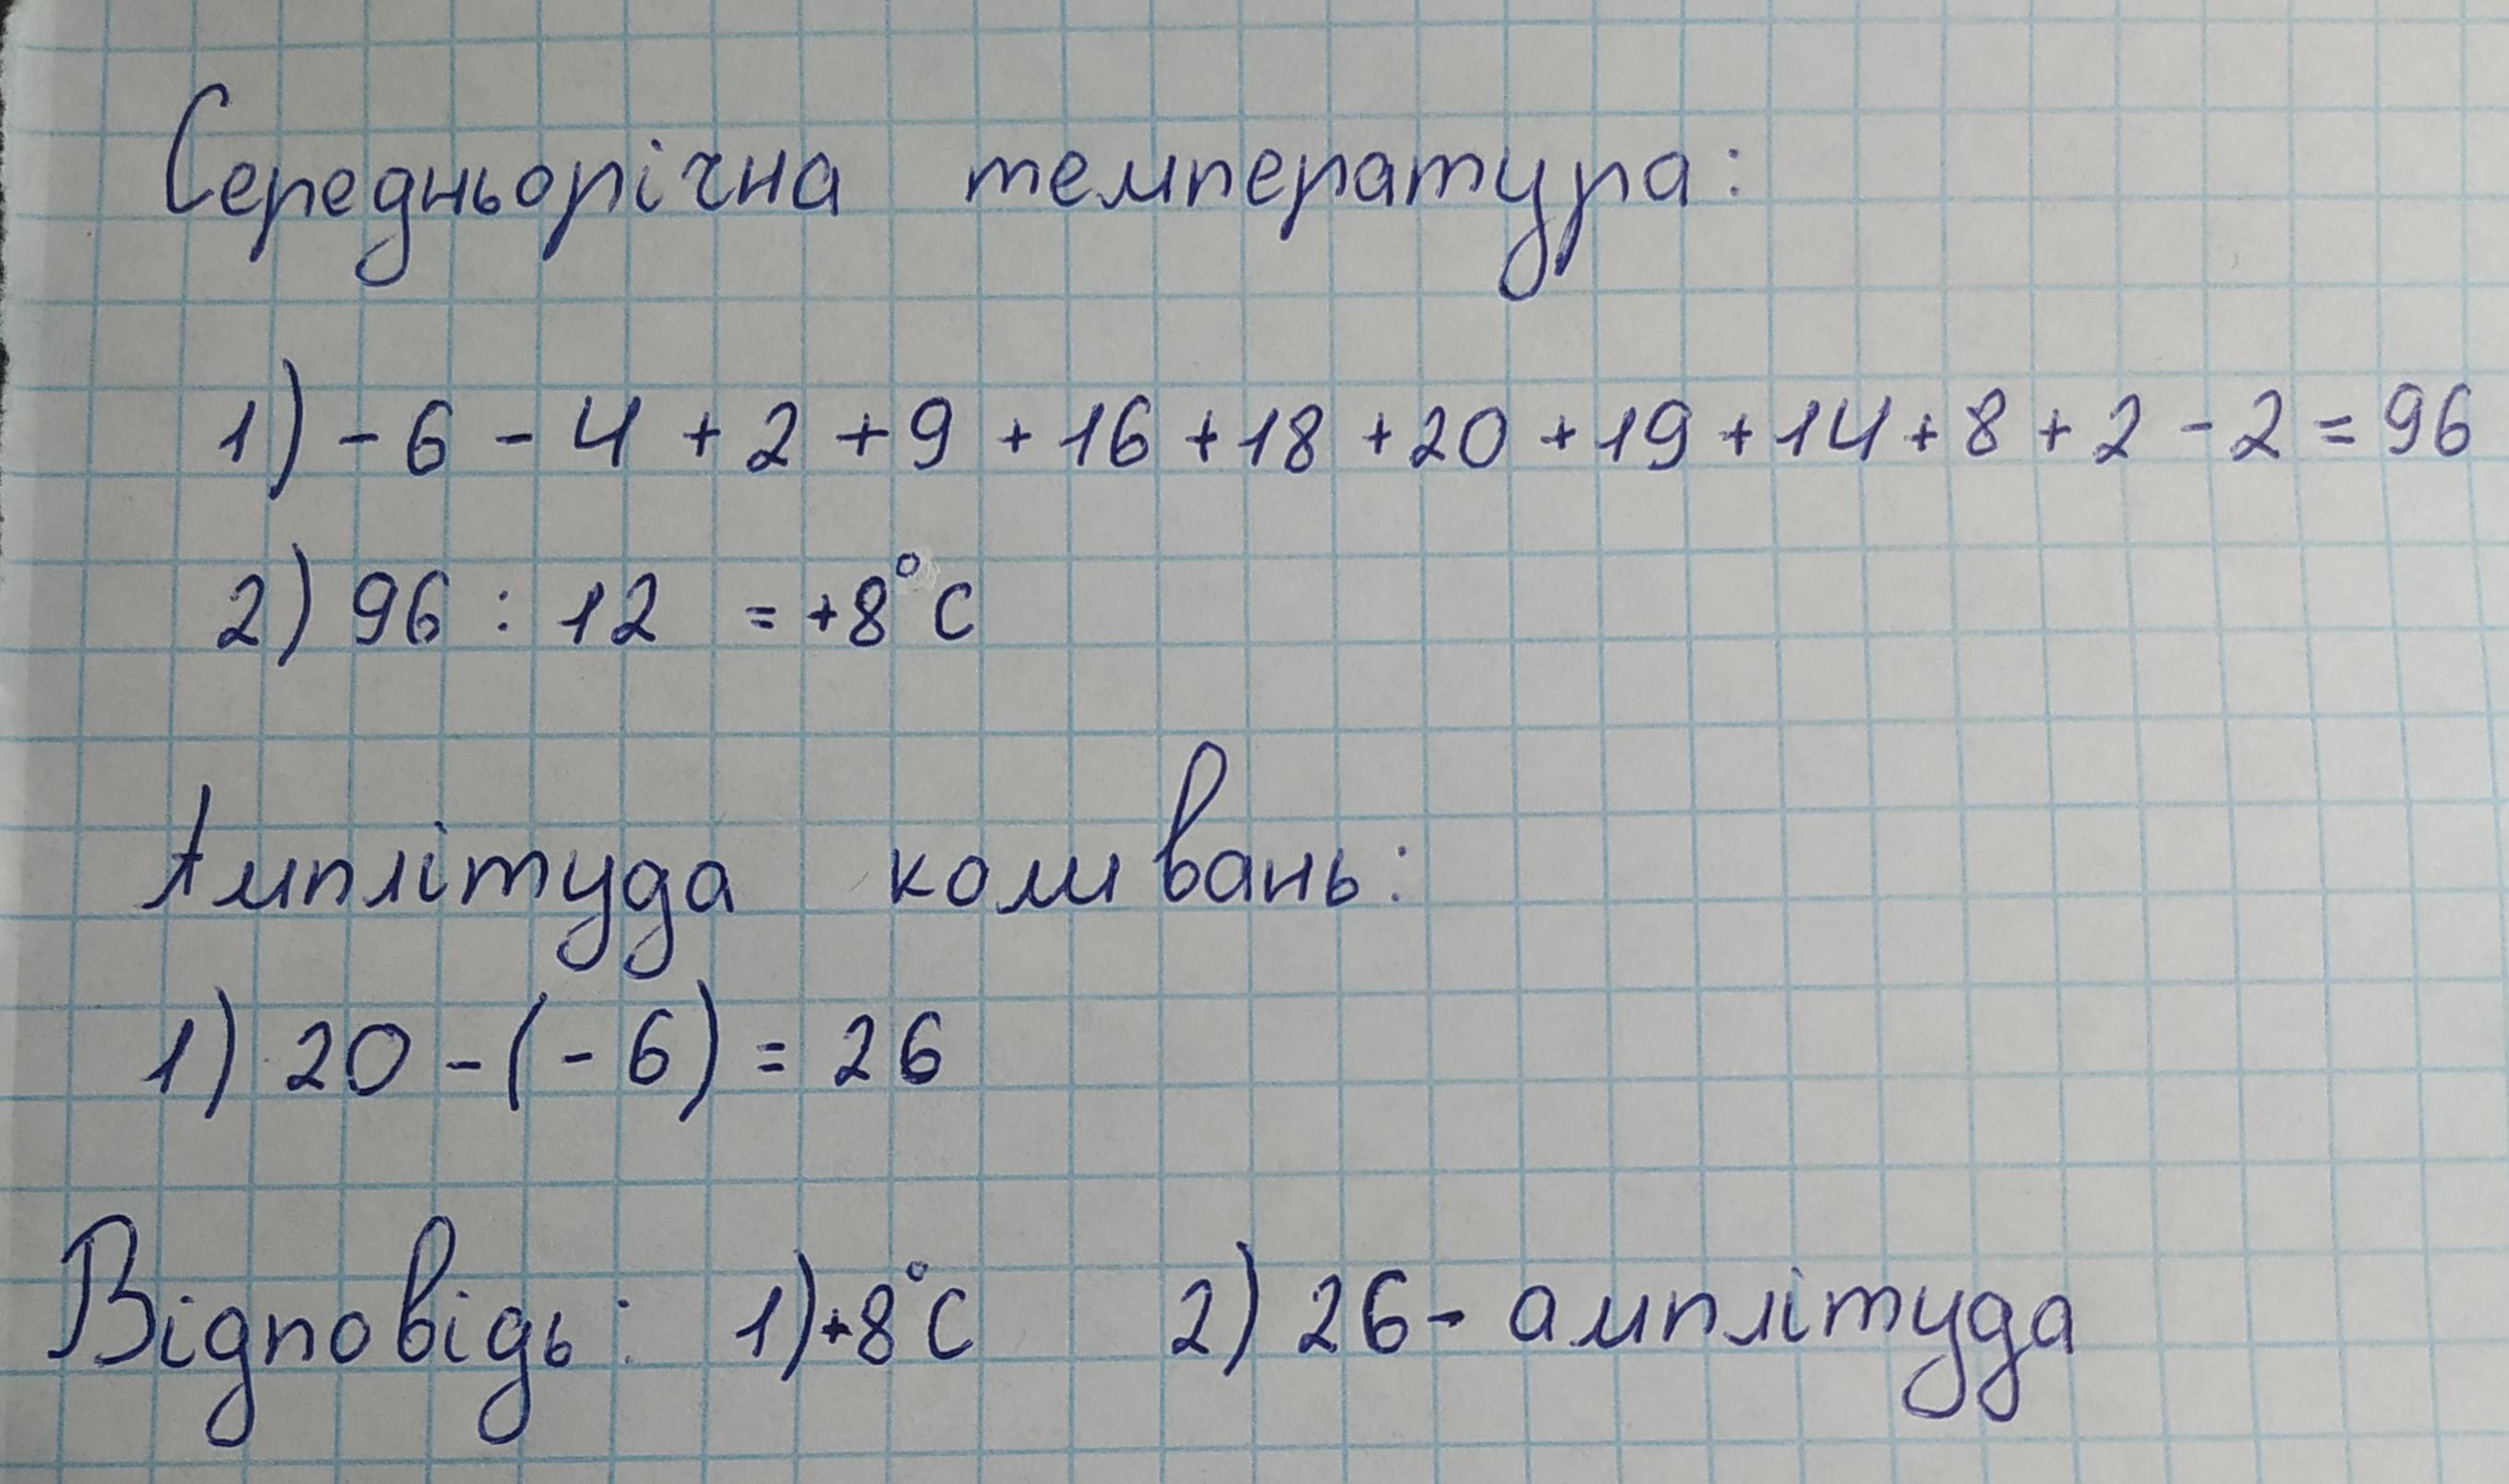 Середньорічна температура:
1) - 6 - 4 + 2 + 9 + 16 + 18 + 20 + 19 + 14 + 8 + 2 - 2 = 96
2) 96 : 12 = +8°C
Амплітуда коливань:
1) 20 - (- 6) = 26
Відповідь: 1) +8°C 2) 26 - амплітуда